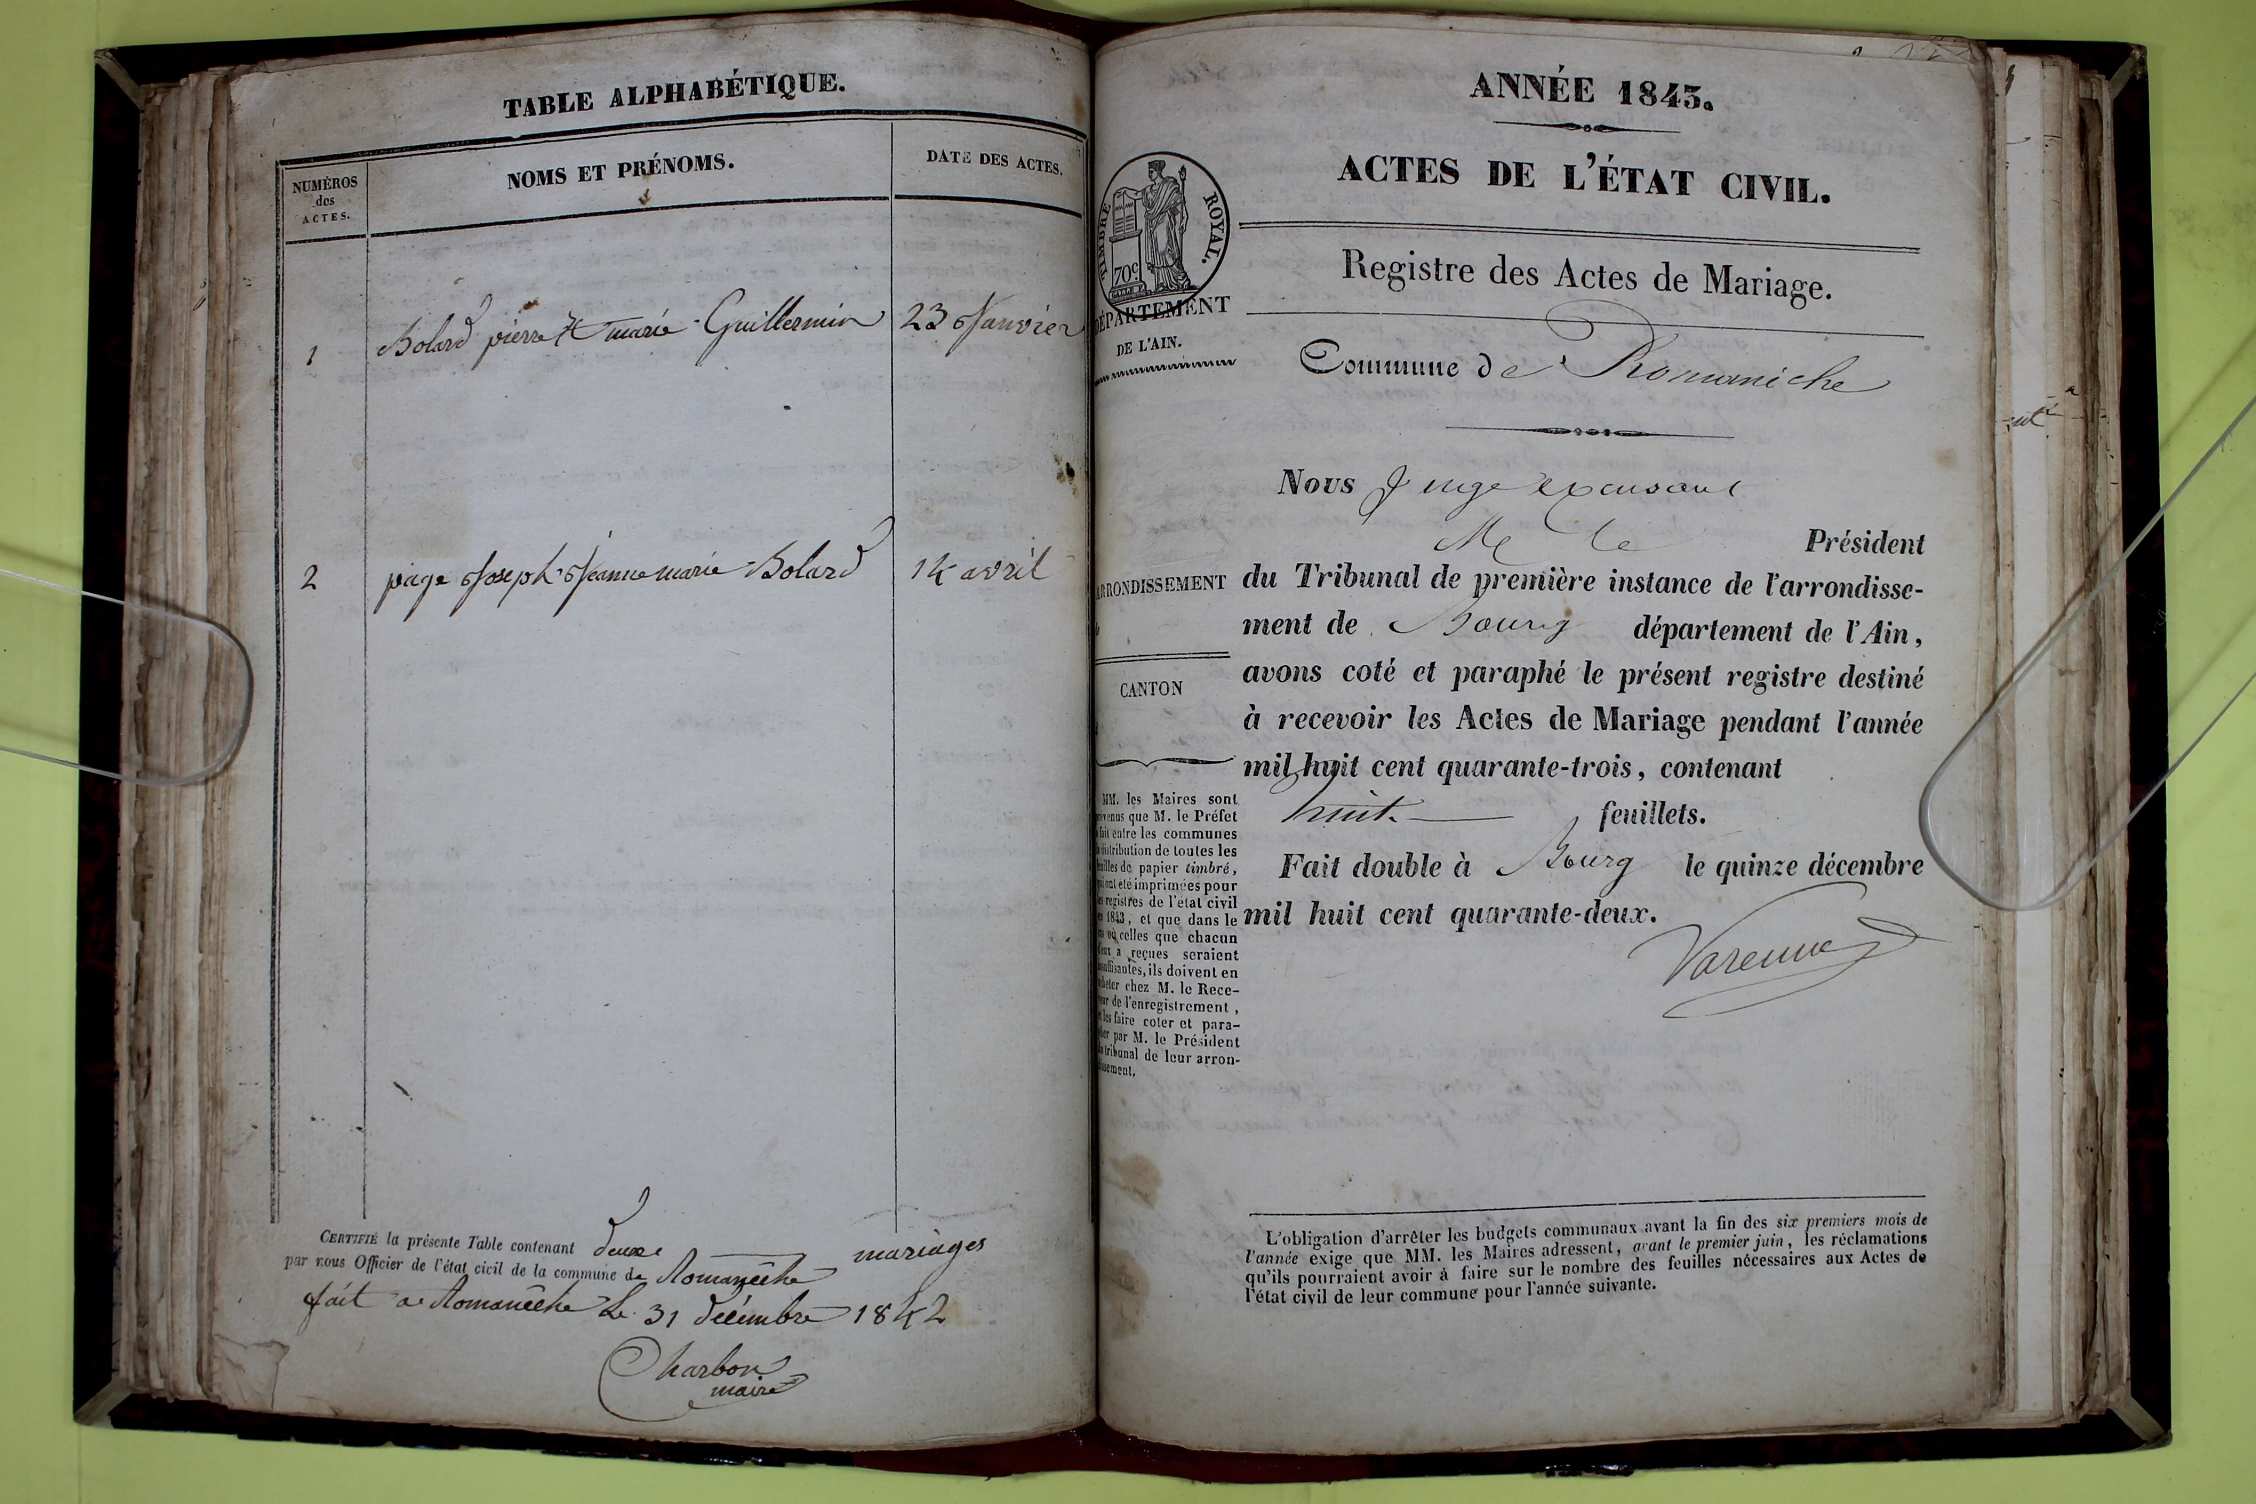 TABLE ALPHABÉTIQUE.
NUMÉROS
des
ACTES.
NOMS ET PRÉNOMS.
DATE DES ACTES.
1 Bolard pierre et marie Guillermin 23 Janvier
2 page Joseph Jeanne marie Bolard 14 avril
CERTIFIÉ la présente Table contenant deux mariages
par nous Officier de l'état civil de la commune de Romanêche
fait a Romanêche Le 31 décembre 1842
Charbon
maire
ANNÉE 1843.
ACTES DE L'ÉTAT CIVIL.
TIMBRE ROYAL.
70c
Registre des Actes de Mariage.
DÉPARTEMENT
DE L'AIN.
Commune de Romaniche
Nous Juge excusant
Mr le Président
ARRONDISSEMENT
du Tribunal de première instance de l'arrondisse-
ment de Bourg département de l'Ain,
CANTON
avons coté et paraphé le présent registre destiné
à recevoir les Actes de Mariage pendant l'année
mil huit cent quarante-trois, contenant
huit feuillets.
Fait double à Bourg le quinze décembre
mil huit cent quarante-deux.
Varenne
MM. les Maires sont
prévenus que M. le Préfet
a fait entre les communes
la distribution de toutes les
feuilles de papier timbré,
qui ont été imprimées pour
les registres de l'état civil
en 1843, et que dans le
cas où celles que chacun
d'eux a reçues seraient
insuffisantes, ils doivent en
acheter chez M. le Rece-
veur de l'enregistrement,
et les faire coter et para-
pher par M. le Président
du tribunal de leur arron-
dissement.
L'obligation d'arrêter les budgets communaux avant la fin des six premiers mois de
l'année exige que MM. les Maires adressent, avant le premier juin, les réclamations
qu'ils pourraient avoir à faire sur le nombre des feuilles nécessaires aux Actes de
l'état civil de leur commune pour l'année suivante.